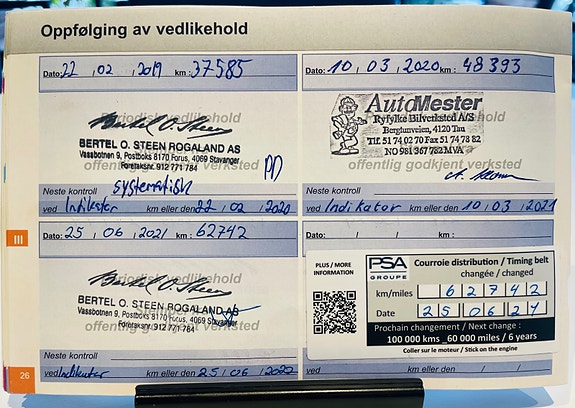 Oppfølging av vedlikehold
Dato: 22 / 02 / 2019 km : 37585
periodisk vedlikehold
BERTEL O. STEEN ROGALAND AS
Vassbotnen 9, Postboks 8170 Forus, 4069 Stavanger
Foretaksnr. 912 771 784
offentlig godkjent verksted
Neste kontroll systematisk
ved Indikator km eller den 22 / 02 / 2020
Dato: 10 / 03 / 2020 km : 48393
AutoMester
Ryfylke Bilverksted A/S
Bergtunveien, 4120 Tau
TLF. 51 74 02 70 Fax 51 74 78 82
NO 981 367 782 MVA
offentlig godkjent verksted
Neste kontroll
ved Indikator km eller den 10 / 03 / 2021
III
Dato: 25 / 06 / 2021 km : 62742
periodisk vedlikehold
BERTEL O. STEEN ROGALAND AS
Vassbotnen 9, Postboks 8170 Forus, 4069 Stavanger
Foretaksnr. 912 771 784
Neste kontroll
ved Indikator km eller den 25 / 06 / 2022
Dato: / / km :
periodisk vedlikehold
PLUS / MORE
INFORMATION
PSA
GROUPE
Courroie distribution / Timing belt
changée / changed
km/miles 62742
Date 25 06 21
Prochain changement / Next change :
100 000 kms _60 000 miles / 6 years
Coller sur le moteur / Stick on the engine
ved km eller den / /
26